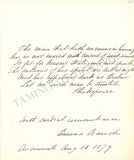 The man that hath no music in himself
Nor is not moved with concord of sweet sounds
Is fit for treasons, stratagems, and spoils;
The motions of his spirit are dull as night
And his affections dark as Erebus:
Let no such man be trusted.
Shakespeare.
With cordial remembrance
Cincinnati Aug 15 1879
TAMINO